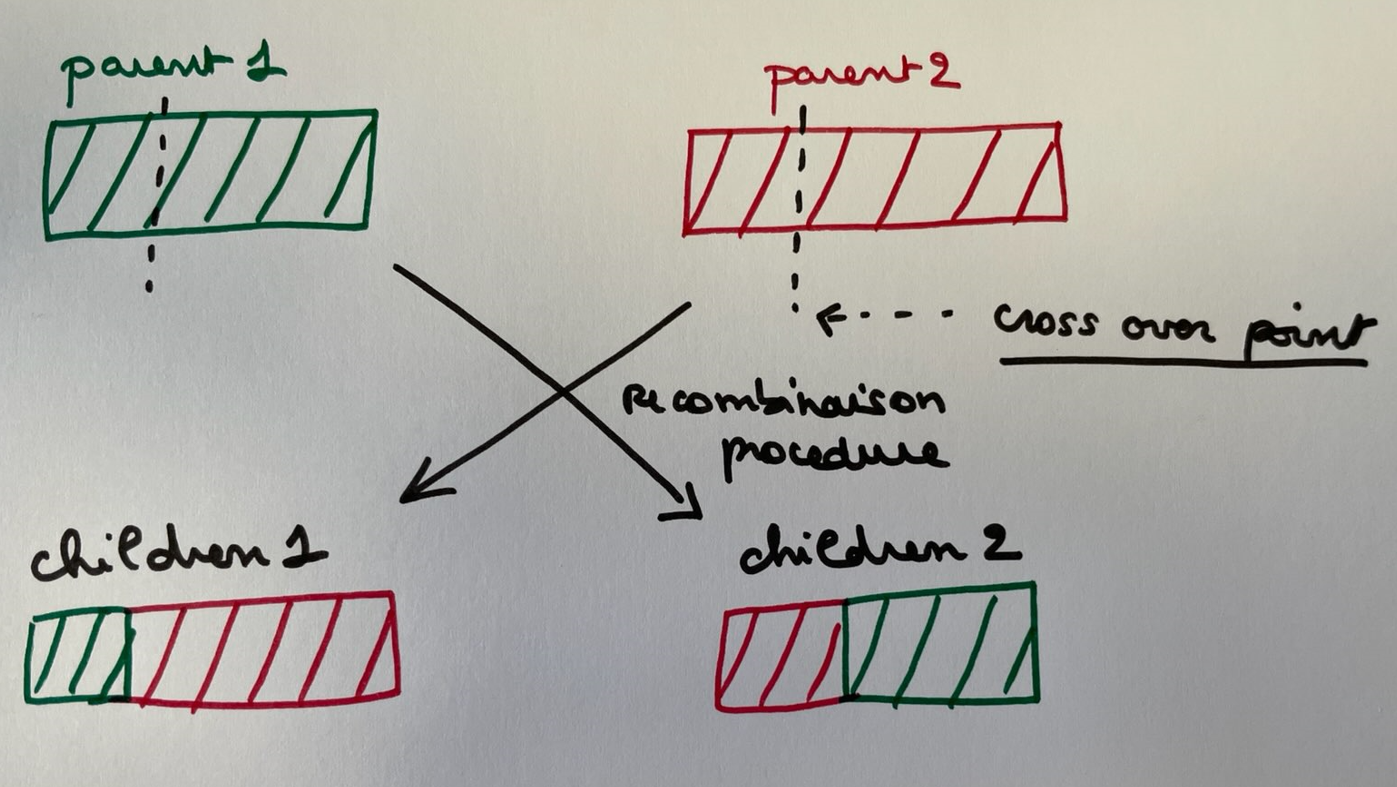 parent 1
parent 2
cross over point
recombinaison
procedure
children 1
children 2